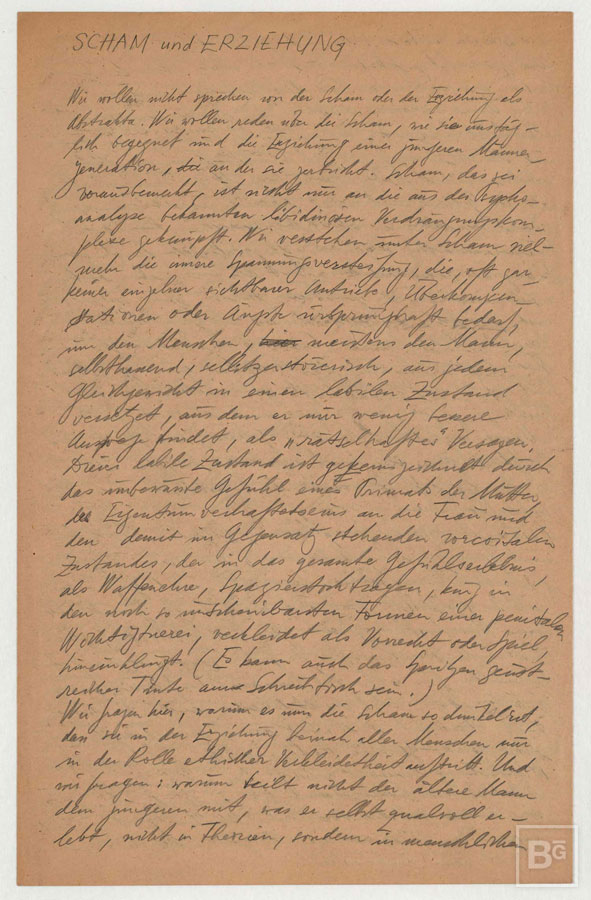 SCHAM und ERZIEHUNG
Wir wollen nicht sprechen von der Scham oder der Erziehung als
Abstrakta. Wir wollen reden über die Scham, wie sie uns täg-
lich begegnet und die Erziehung einer jüngeren Männer-
generation, die an der sie zerbricht. Scham, das sei
vorausbemerkt, ist nicht nur an die aus der Psycho-
analyse bekannten libidinösen Verdrängungskom-
plexe geknüpft. Wir verstehen unter Scham viel-
mehr die innere Spannungsversteifung, die, oft gar
keiner einzelner sichtbarer Antriebe, Überkompen-
sationen oder Ängste ursprunghaft bedarf,
um den Menschen, meistens den Mann,
selbsthassend, selbstzerstörerisch, aus jedem
Gleichgewicht in einen labilen Zustand
versetzt, aus dem er nur wenig bessere
Auswege findet, als „rätselhaftes" Versagen.
Dieser labile Zustand ist gekennzeichnet durch
das unbewusste Gefühl eines Primats der Mutter,
des Eigentumverhaftetseins an die Frau und
den damit im Gegensatz stehenden
Zustandes, der in das gesamte Gefühlserlebnis,
als Waffenehre, Spazierstocktragen, kurz in
den noch so unscheinbarsten Formen einer
verkleidet als Vorrecht oder Spiel,
hineinklingt. (Es kann auch das Spritzen geist-
reicher Tinte am Schreibtisch sein.)
Wir fragen hier, warum es um die Scham so dunkel ist,
dass sie in der Erziehung beinah aller Menschen nur
in der Rolle ethischer Verkleidetheit auftritt. Und
wir fragen: warum teilt nicht der ältere Mann
dem jüngeren mit, was er selbst qualvoll er-
lebt, nicht in Theorien, sondern in menschlichen
BG